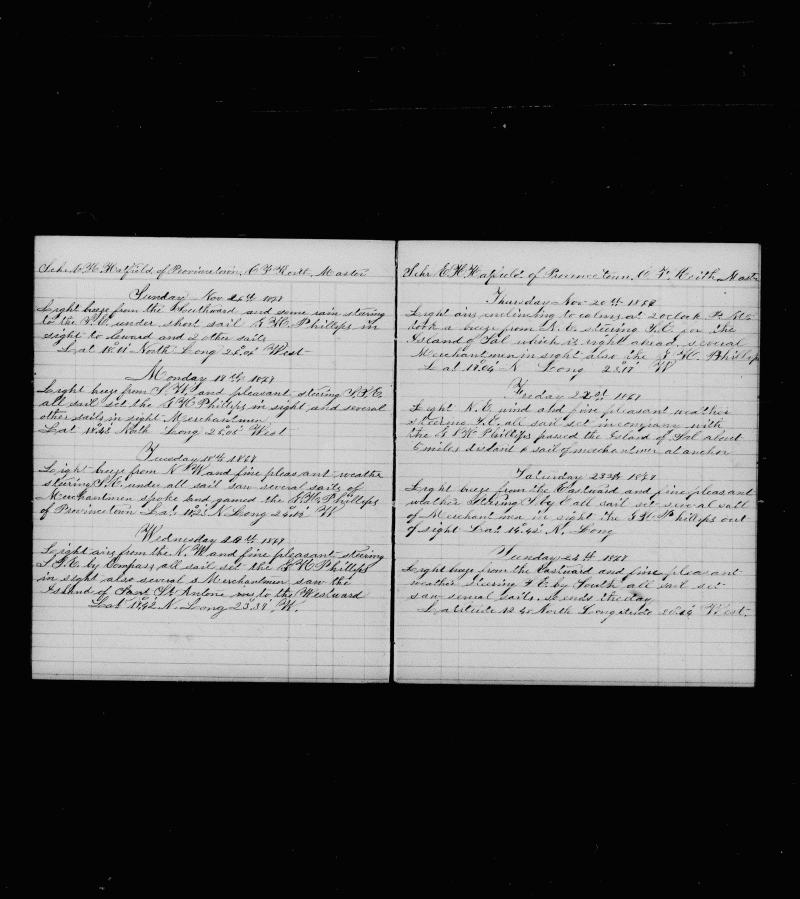 Schr E. H. Hatfield of Provincetown, C F Keith, Master
Sunday Nov 1868
Light breeze from the Southward and some rain staring
to the S.E. under short sail G H Phillips in
sight to leward and 2 other sails
Lat 18°11 North Long 26°01 West
Monday 18th 1868
Light breeze from S.W. and pleasant stering S.S.E.
all sail set the G H Phillips in sight and several
other sails in sight Merchantmen
Lat 18°43 North Long 26°05 West
Tuesday 1868
Light breeze from N.W and fine pleasant weather
stering S.E. under all sail saw several sails of
Merchantmen spoke and gamed the G. H. Phillips
of Provincetown Lat N Long W
Wednesday 1868
Light airs from the N.W and fine pleasant stering
S.S.E by Compass all sail set the G H Phillips
in sight also several Merchantmen saw the
Island of Sant St Antonie to the Westward
Lat N. Long 23°39 W.
Schr E H Hatfield of Provincetown. C. F. Keith Master
Thursday Nov 20th 1868
Light airs inclineing to calms at 2 oclock P.M.
took a breeze from N.E. steering S.E. for the
Island of Sal which is right ahead, several
Merchantmen in sight also the G H. Phillips
Lat N Long W
Friday 1868
Light N.E. wind and fine pleasant weather
steering S.E. all sail set in company with
the G H Phillips passed the Island of Sal about
6 miles distant a sail of merchantmen at anchor
Saturday 1868
Light breeze from the Eastward and fine pleasant
weather stering S by E all sail set several sail
of Merchantmen in sight the G H Phillips out
of sight Lat 14°45 N, Long
1868
Light breeze from the Eastward and fine pleasant
weather steering S E by South all sail set
saw several sails. so ends the day
Latitude 12 40 North Longatude West.